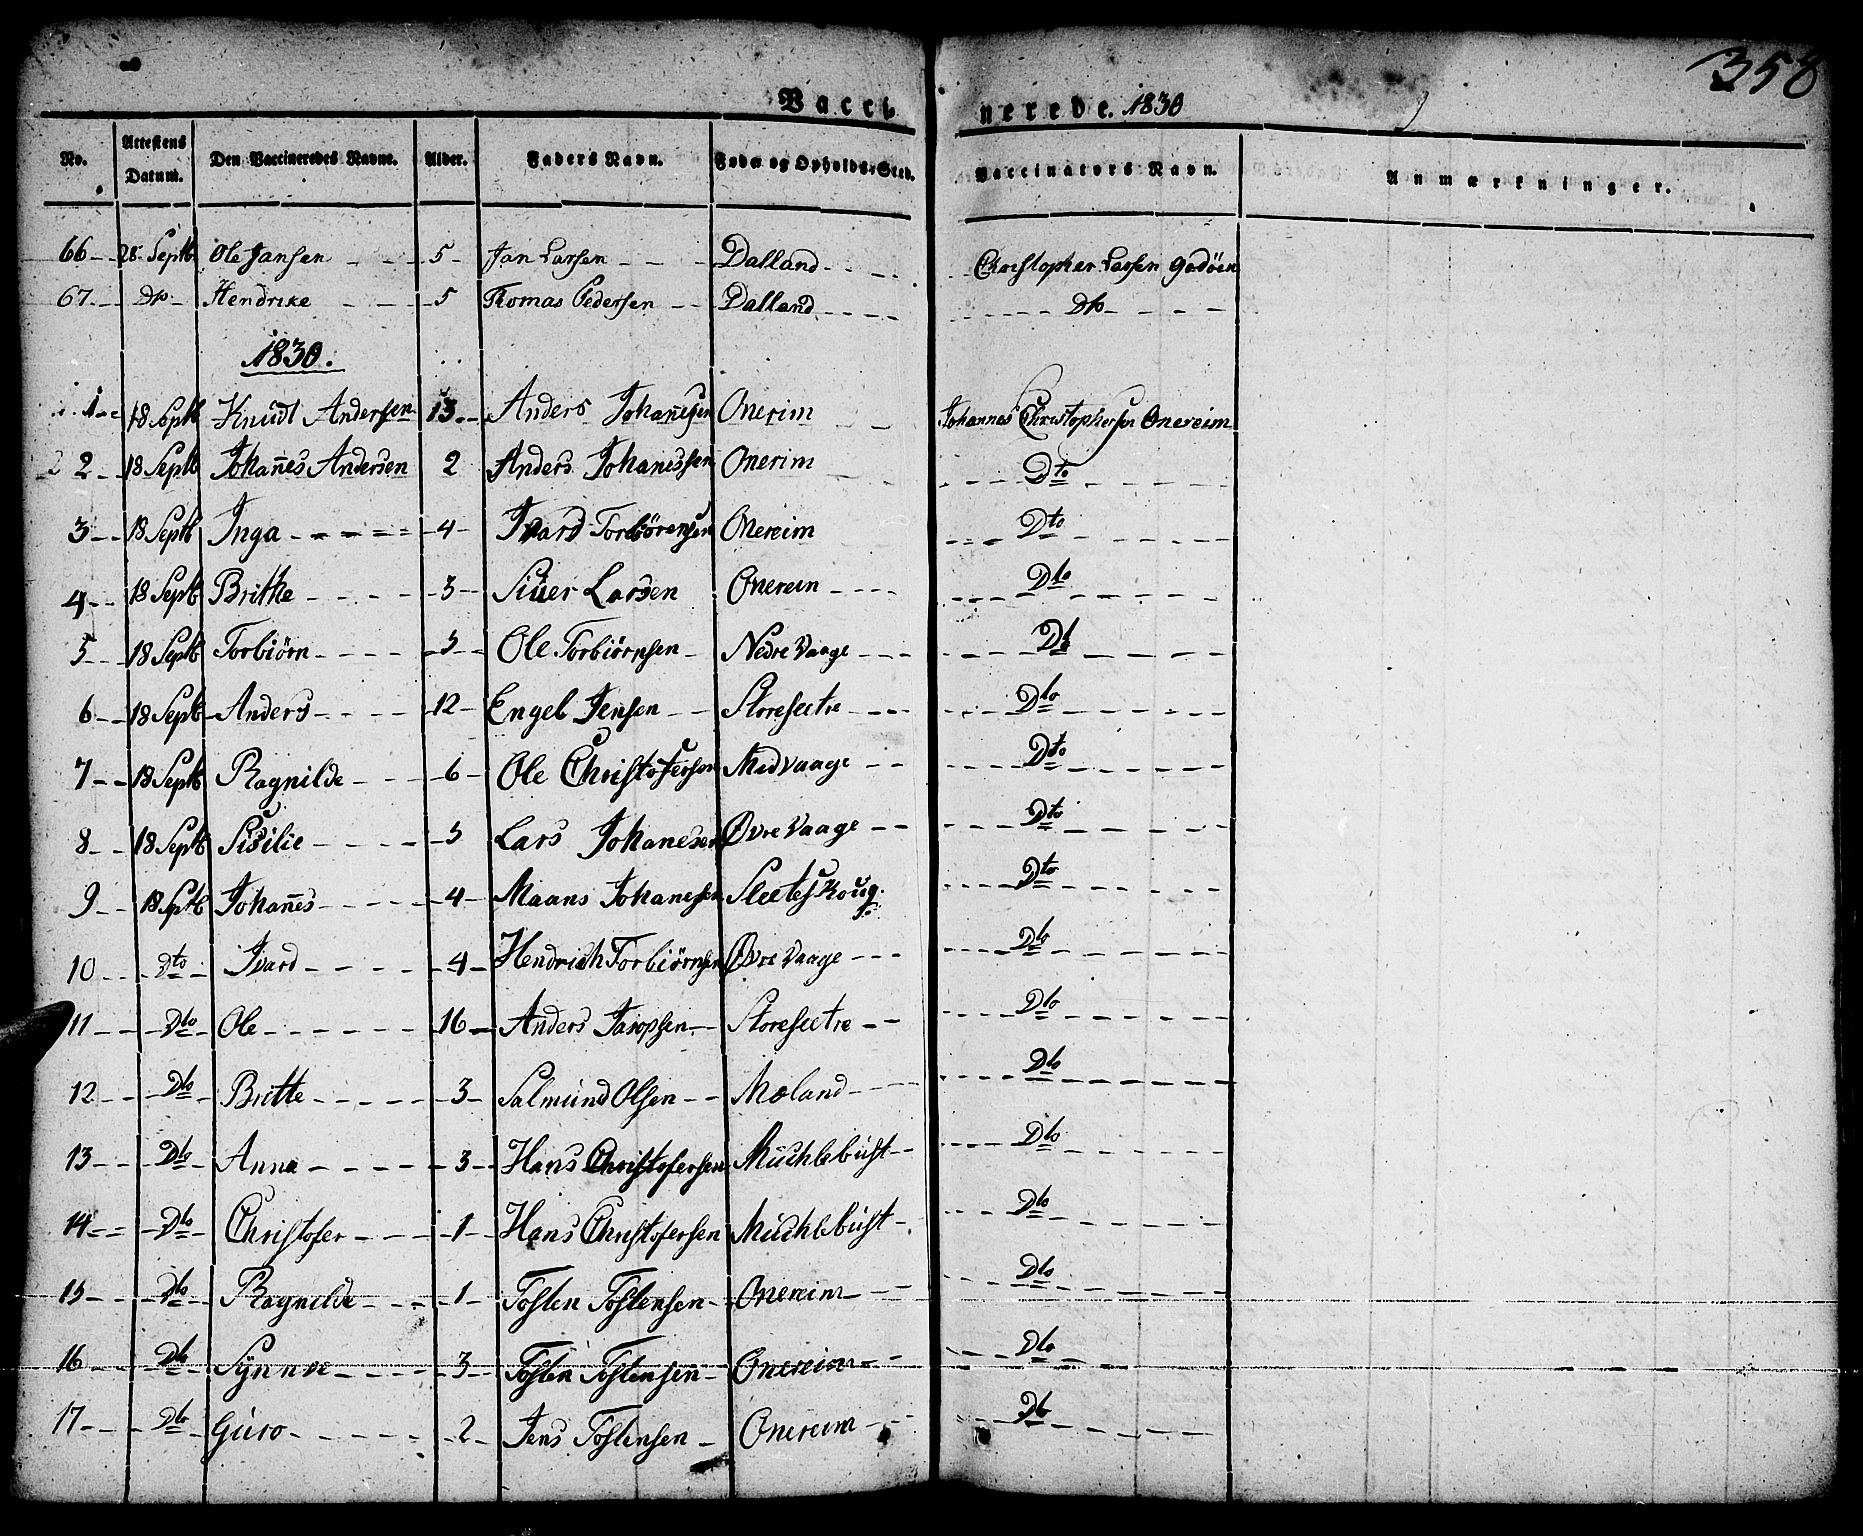 358
Vaccinerede. 1830
No. | Attestens Datum. | Den Vaccineredes Navne. | Alder. | Faders Navn. | Føde og Opholds-Sted. | Vaccinators Navn. | Anmærkninger.
66 | 28 Septb | Ole Jansen | 5 | Jan Larsen | Dalland | Christopher Larsen Godöen
67 | Do | Hendrike | 5 | Thomas Pedersen | Dalland | Do
1830.
1 | 18 Septb | Knudt Andersen | 13 | Anders Johannesen | Onerim | Johannes Christophersen Onereim
2 | 18 Septb | Johan̄es Andersen | 2 | Anders Johanessen | Onerim | Dto
3 | 18 Septb | Inga | 4 | Ivard Torbiörensen | Onereim | Dto
4 | 18 Septb | Brithe | 3 | Siuer Larsen | Onerein | Dto
5 | 18 Septb | Torbiörn | 5 | Ole Torbiörnsen | Nedre Vaage | Dt
6 | 18 Septb | Anders | 12 | Engel Jensen | Storesectre | Dto
7 | 18 Septb | Ragnilde | 6 | Ole Christofersen | Medvaage | Dto
8 | 18 Septb | Sisilie | 5 | Lars Johanesen | Øvre Vaage | Dto
9 | 18 Sptb | Johan̄es | 4 | Maans Johanesen | Sleeteskoug. | Dto
10 | Dto | Ivard | 4 | Hendrich Torbiörnsen | Øvre Vaage | Dto
11 | Dto | Ole | 16 | Anders Jacopsen | Storesectre | Dto
12 | Dto | Britte | 3 | Salmund Olsen | Moland | Dto
13 | Dto | Anna | 3 | Hans Christofersen | Muchlebust | Dto
14 | Dto | Christofer | 1 | Hans Christofersen | Muchlebust | Dto
15 | Dto | Ragnilde | 1 | Tosten Tostensen | Onereim | Dto
16 | Dto | Synnve | 3 | Tosten Tostensen | Onereim | Dto
17 | Dto | Guro | 2 | Jens Tostensen | Onereim | Dto